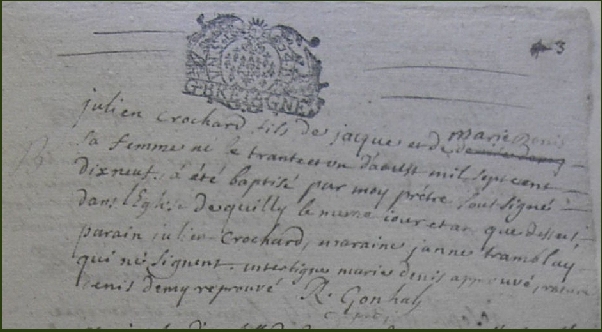 3
G·BRETAGNE
julien Crochard fils de jacque et de marie Denis
sa femme né le trante et un daoust mil sept cent
dixneuf, a été baptisé par moy prêtre sousigné
dans l'Eglise de quilly le meme iour et an que dessus,
parain julien Crochard, maraine janne tramblay
qui ne signent. interligne marie denis approuvé, rature
denis demy reprouvé R. Gonhal